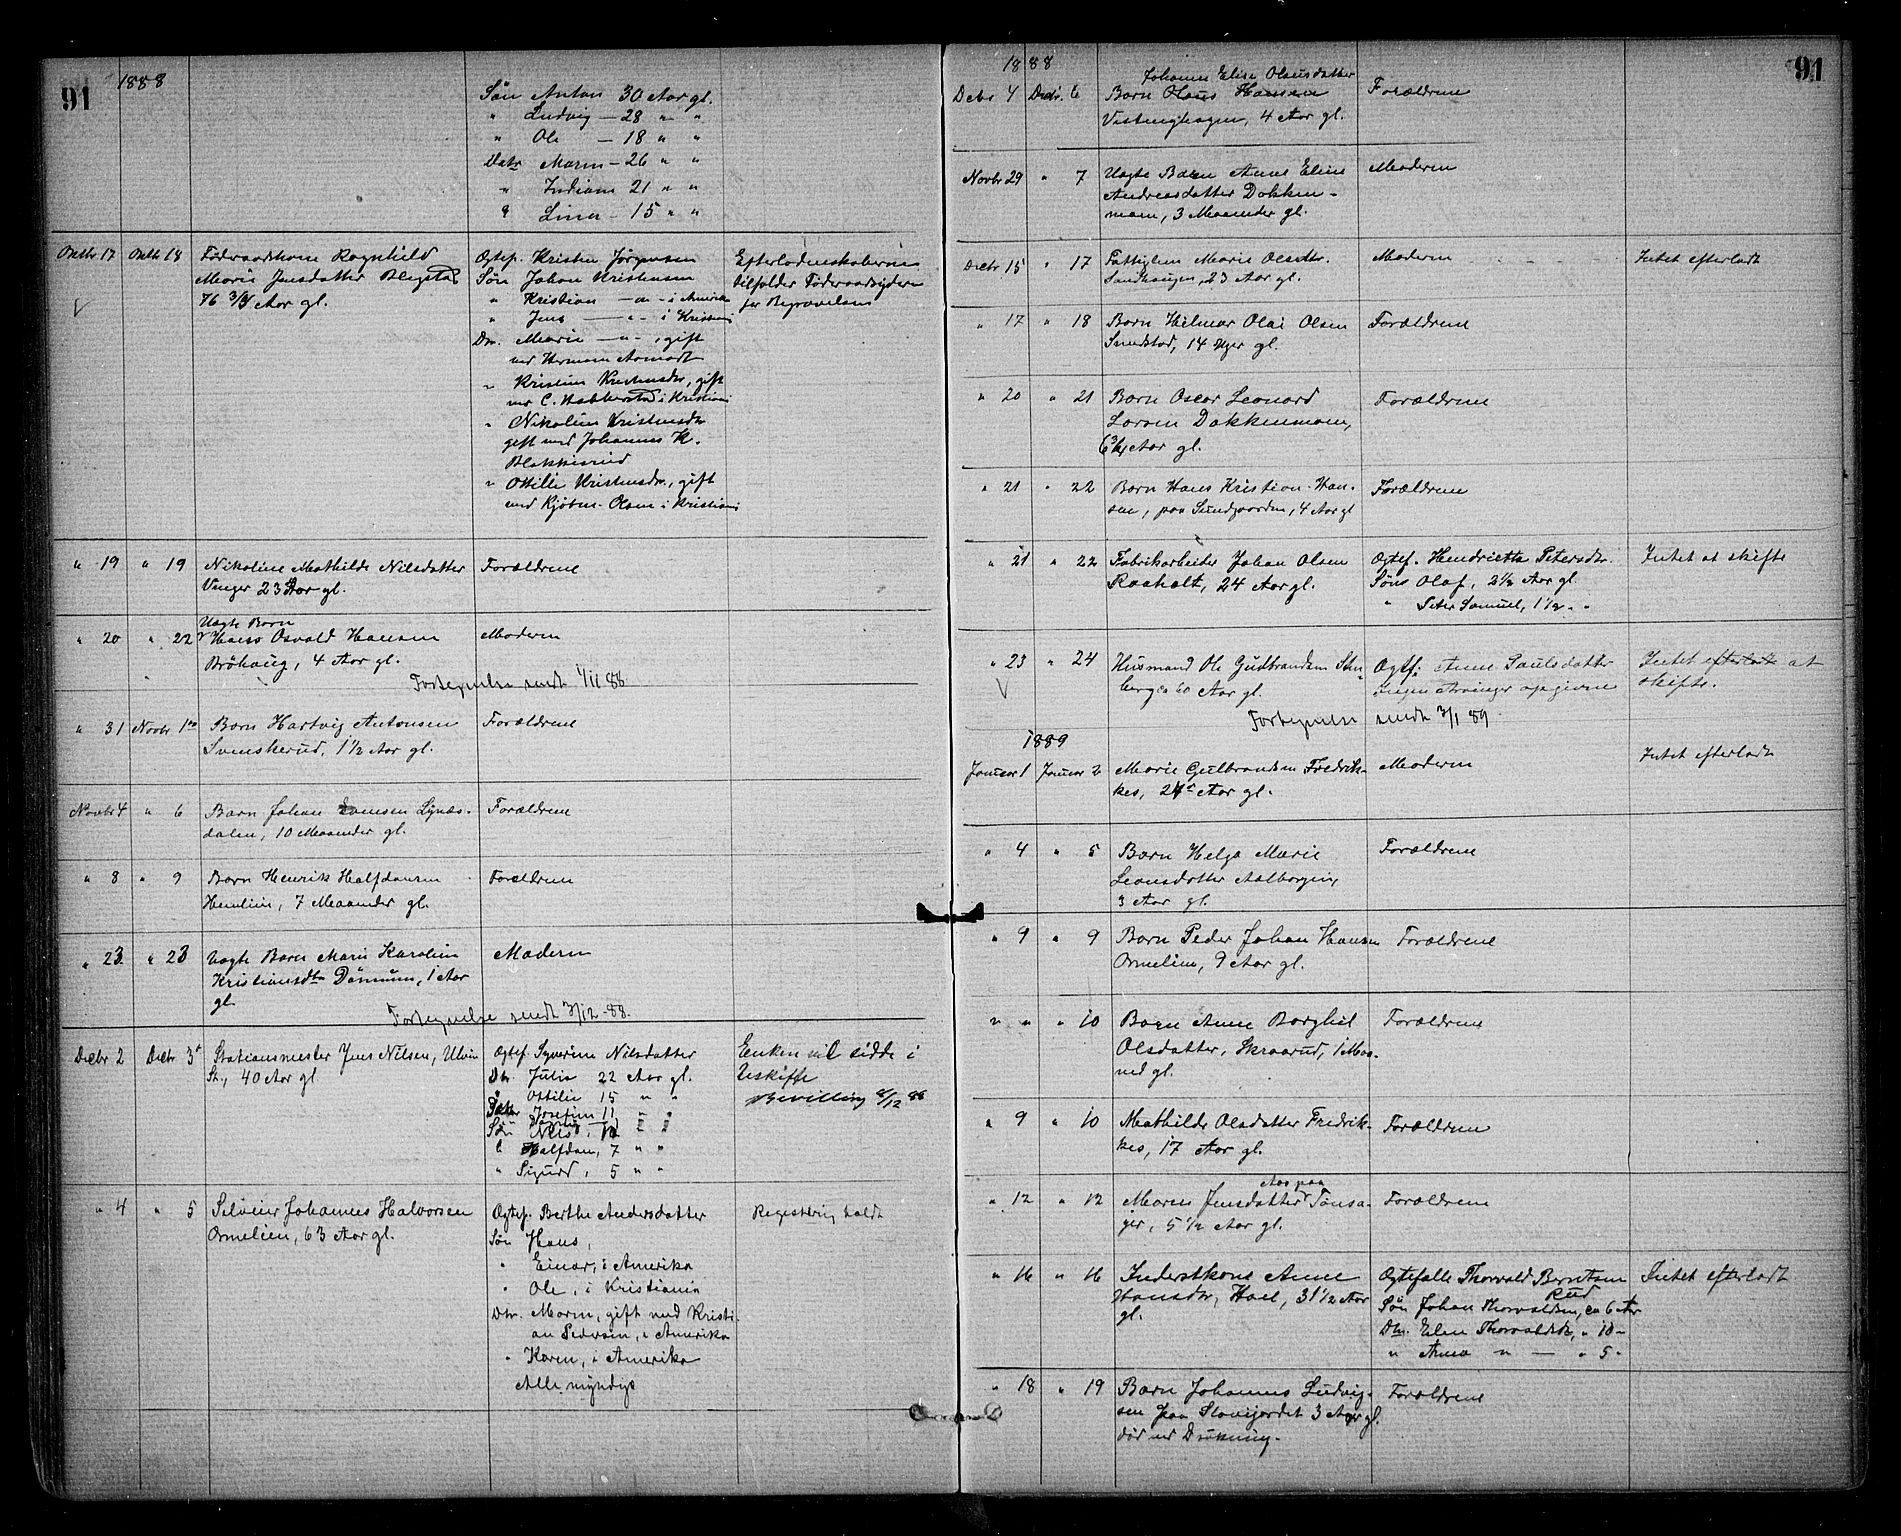 91 1888
Søn Anton 30 Aar gl.
" Ludvig — 28 " "
" Ole — 18 " "
Datr Maren — 26 " "
" Indiane 21 " "
" Lina — 15 " "
Oktbr 17 Oktbr 18 Føderaadskone Ragnhild
Marie Jensdatter Blegstad
76 3/4 Aar gl.
Ogtef. Kristen Jørgensen
Søn Johan Kristensen
" Kristian — " — i Amerika
" Jens — " — i Kristiania
Dtr. Marie — " —, gift
med Herman Aamodt
" Kristine Kristensdtr, gift
med C. i Kristiania
" Nikoline Kristensdtr
gift med Johannes K.
Blakkisrud
" Ottilie Kristensdtr., gift
med Kjøbm. Olsen i Kristiania
Efterladenskaberne
tilfalder Føderaadsyderen
for Begravelsen
" 19 " 19 Nikoline Mathilde Nilsdatter
Vinger 23 Aar gl.
Forældrene
" 20 " 22 Uægte Barn
Hans Osvald Hansen
Brøhaug, 4 Aar gl.
Moderen
Fortegnelse sendt 1/11 88
" 31 Novbr 1ste Barn Hartvig Antonsen
Svenskerud, 1 1/2 Aar gl.
Forældrene
Novbr 4 " 6 Barn Johan
dalen, 10 Maaneder gl.
Forældrene
" 8 " 9 Barn Henrik Halfdansen
Hemlin, 7 Maaneder gl.
Forældrene
" 23 " 23 Uægte Barn Maren Karoline
Kristiansdtr Dømum, 1 Aar
gl.
Moderen
Fortegnelse sendt 3/12-88.
Decbr 2 Decbr 3 Stationsmester Jens Nilsen, Ulvin
St., 40 Aar gl
Ogtef. Syverine Nilsdatter
Dtr. Julie 22 Aar gl.
" Ottilie 15 " "
Datter Josefine 11 " "
Søn Nils, " "
" Halfdan, 7 " "
" Sigurd, 5 " "
Enken vil sidde i
Uskifte
Bevilling 8/12 88
" 4 " 5 Selveier Johannes Halvorsen
Ormelien, 63 Aar gl.
Ogtef. Berthe Andersdatter
Søn Hans,
" Einar, i Amerika
" Ole, i Kristiania
Dtr. Maren, gift med Kristi-
an Pedersen, i Amerika
" Karen, i Amerika
Alle myndige
Registrering holdt
1888 91
Decbr 4 Decbr. 6 Johanne Elise Olausdatter
Barn Olaus Hansen
Vestenghagen, 4 Aar gl.
Forældrene
Novbr 29 " 7 Uægte Barn Anne Eline
Andreasdatter Dokken-
moen, 3 Maaneder gl.
Moderen
Decbr 15 " 17 Fattiglem Marie Olsdtr.
Sandhaugen, 23 Aar gl.
Moderen
Intet efterladt
" 17 " 18 Barn Hilmar Olai Olsen
Sundstad, 14 Uger gl.
Forældrene
" 20 " 21 Barn Oscar Leonard
Larsen Dokkenmoen,
6 3/4 Aar gl.
Forældrene
" 21 " 22 Barn Hans Kristian Han-
sen, paa Sundgaarden, 4 Aar gl
Forældrene
" 21 " 22 Fabrikarbeider Johan Olsen
Raaholt, 24 Aar gl.
Ogtef. Hendriette Petersdtr.
Søns Olaf, 2 1/2 Aar gl.
" Peter Samuel, 1 1/2 " "
Intet at skifte
" 23 " 24 Husmand Ole Gudbrandsen Sten-
berg ca 60 Aar gl.
Ogtf. Anne Paulsdatter
Ingen Arvinger opgivne
Intet efterladt at
skifte.
Fortegnelse sendt 3/1 89.
1889
Januar 1 Januar 2 Marie Gulbrandsen Fredrik-
kes, 24 Aar gl.
Moderen
Intet efterladt
" 4 " 5 Barn Helga Marie
Leonsdatter Aalborgin,
3 Aar gl.
Forældrene
" 9 " 9 Barn Peder Johan Hansen
Ormelien, 9 Aar gl.
Forældrene
" " " 10 Barn Anne Borghil
Olsdatter, Skraarud, 1 Maa-
ned gl.
Forældrene
" 9 " 10 Mathilde Olsdatter Fredrik-
kes, 17 Aar gl.
Forældrene
" 12 " 12 Maren Jensdatter Aas paa Tønsa-
ger, 5 1/2 Aar gl.
Forældrene
" 16 " 16 Inderstkone Anne
Hansdtr, Hoel, 31 1/2 Aar
gl.
Ogtefælle Thorvald Berntsen
Rud
Søn Johan Thorvaldsen, ca 6 Aar
Dtr. Elen Thorvaldsdtr, " 10 "
" Anna " — " 5 "
Intet efterladt
" 18 " 19 Barn Johannes Ludvig-
sen paa Slorijordet 3 Aar gl.
død ved Drukning.
Forældrene